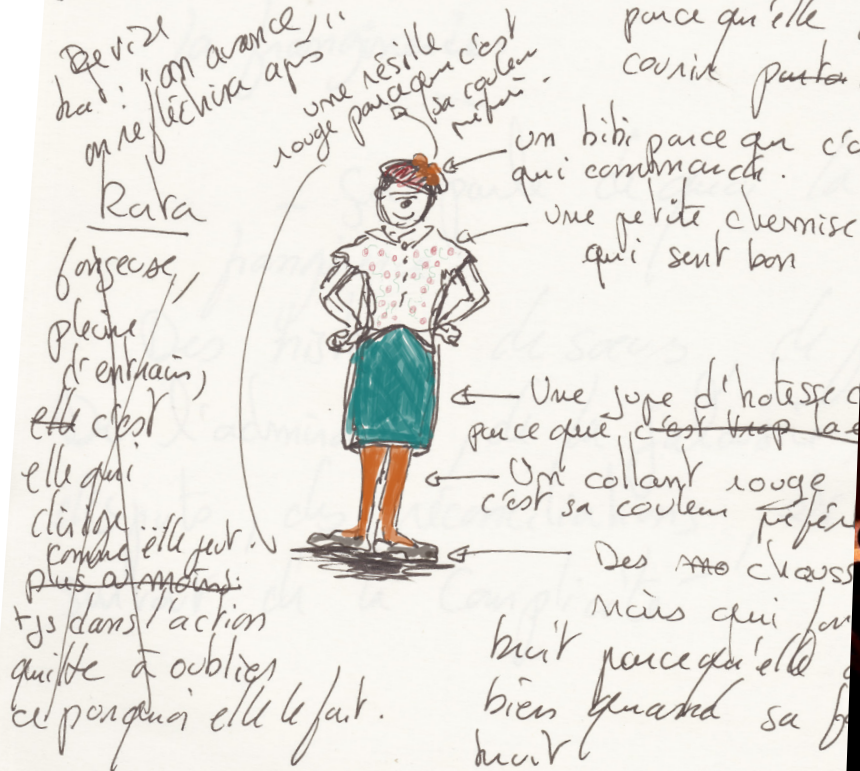 Devise
Rara : "on avance,
on réfléchira après
Rara
fonseuse,
pleine
d'entrain,
elle c'est
elle qui
dirige
comme elle peut.
plus ou moins.
tjs dans l'action
quitte à oublier
ce pourquoi elle le fait.
une résille
rouge parce que c'est
sa couleur
préféré.
parce qu'elle
courir
un bibi parce que c'
qui commande.
une petite chemise
qui sent bon
Une jupe d'hotesse
parce que c'est trop la
Un collant rouge
c'est sa couleur préfér
Des chauss
noirs qui
bruit parcequ'elle
bien quand sa f
bruit